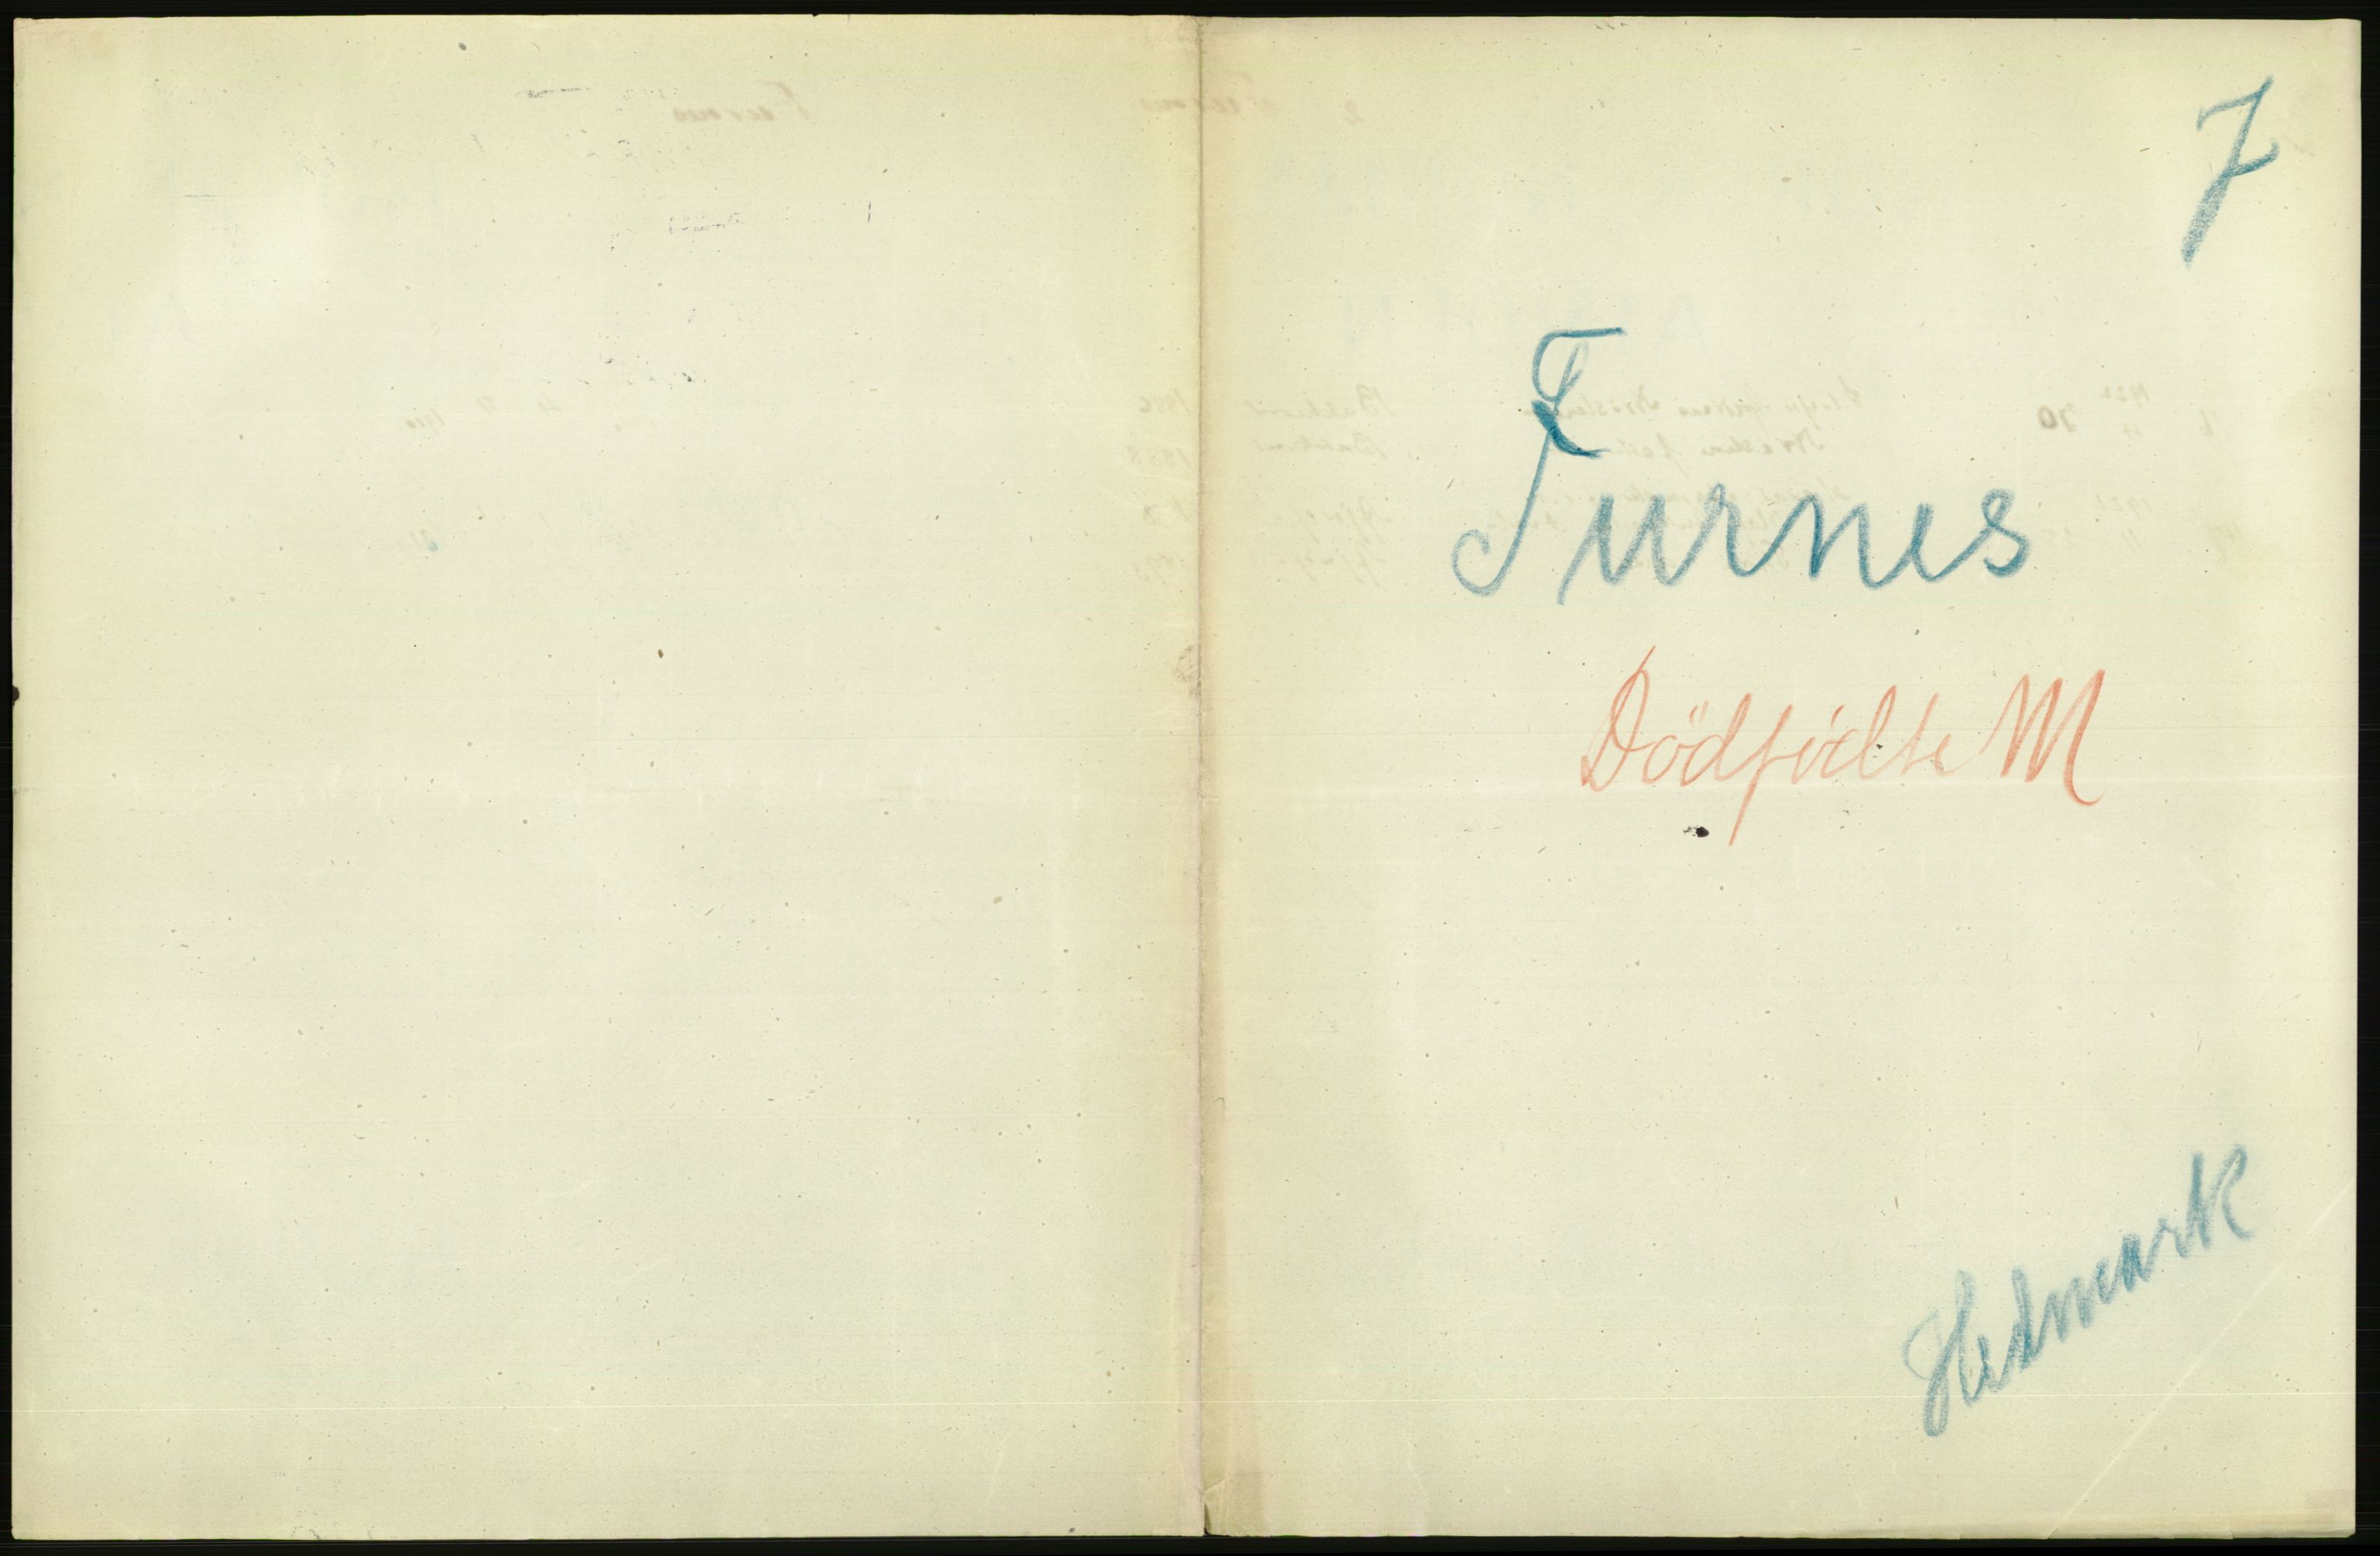 7
Furnes
Dödfödte M
Hedmark